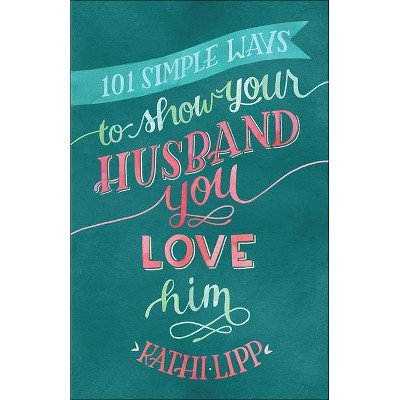 101 SIMPLE WAYS
to show your
HUSBAND
you
LOVE
him
KATHI LIPP